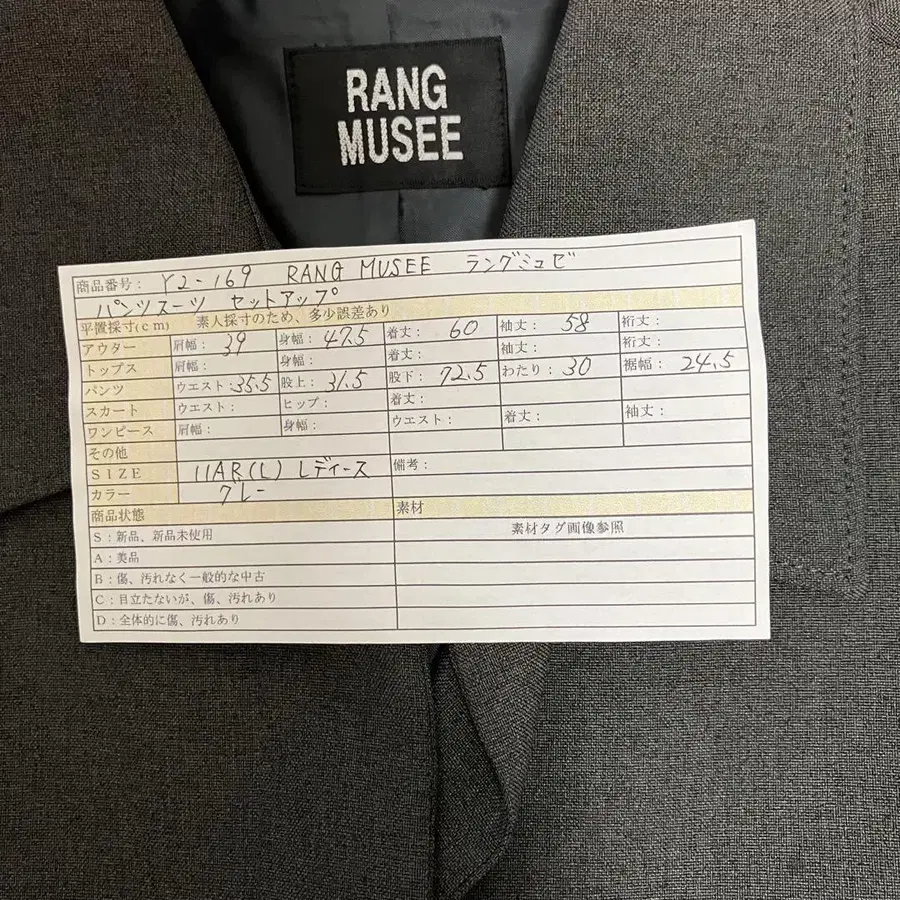 RANG
MUSEE
商品番号： Y2-169 RANG MUSEE ラングミュゼ
パンツスーツ セットアップ
平置採寸(cm) 素人採寸のため、多少誤差あり
アウター 肩幅： 39 身幅： 47.5 着丈： 60 袖丈： 58 裄丈：
トップス 肩幅： 身幅： 着丈： 袖丈： 裄丈：
パンツ ウエスト：35.5 股上： 31.5 股下： 72.5 わたり： 30 裾幅： 24.5
スカート ウエスト： ヒップ： 着丈：
ワンピース 肩幅： 身幅： ウエスト： 着丈： 袖丈：
その他
SIZE 11AR(L) レディース 備考：
カラー グレー
商品状態 素材
S：新品、新品未使用 素材タグ画像参照
A：美品
B：傷、汚れなく一般的な中古
C：目立たないが、傷、汚れあり
D：全体的に傷、汚れあり